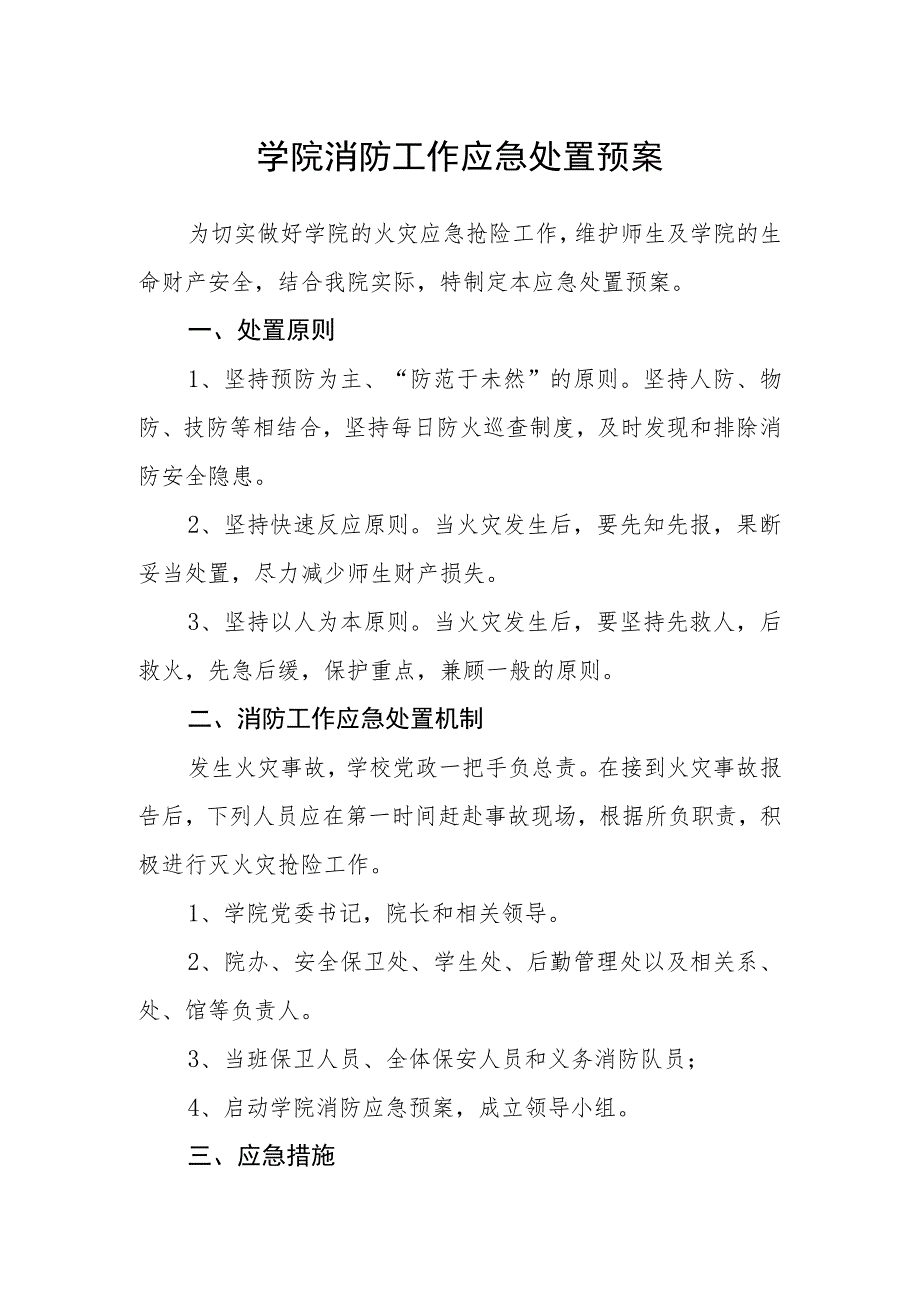 学院消防工作应急处置预案
为切实做好学院的火灾应急抢险工作，维护师生及学院的生
命财产安全，结合我院实际，特制定本应急处置预案。
一、处置原则
1、坚持预防为主、“防范于未然”的原则。坚持人防、物
防、技防等相结合，坚持每日防火巡查制度，及时发现和排除消
防安全隐患。
2、坚持快速反应原则。当火灾发生后，要先知先报，果断
妥当处置，尽力减少师生财产损失。
3、坚持以人为本原则。当火灾发生后，要坚持先救人，后
救火，先急后缓，保护重点，兼顾一般的原则。
二、消防工作应急处置机制
发生火灾事故，学校党政一把手负总责。在接到火灾事故报
告后，下列人员应在第一时间赶赴事故现场，根据所负职责，积
极进行灭火灾抢险工作。
1、学院党委书记，院长和相关领导。
2、院办、安全保卫处、学生处、后勤管理处以及相关系、
处、馆等负责人。
3、当班保卫人员、全体保安人员和义务消防队员；
4、启动学院消防应急预案，成立领导小组。
三、应急措施